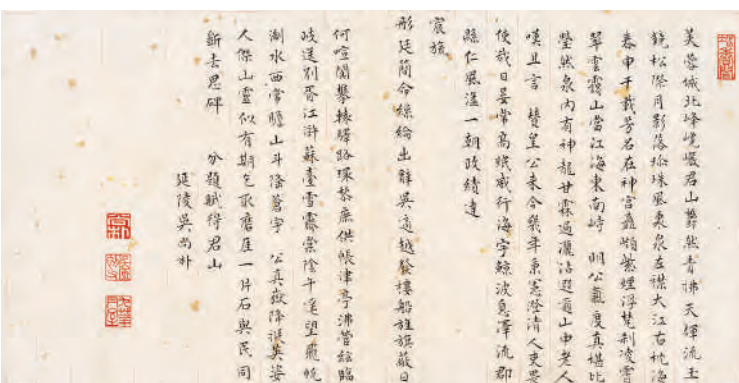 芙蓉城北峰嶢巖君山欝然青拂天輝流玉
鏡松際月影落 珠風東泉左襟大江右枕海
春申千載芳名在神宮矗 紫煙浮梵刹凌雲
翠雲霧山當江海東南峙 明公氣度真堪比
瑩然泉內有神龍甘霖遍灑沾遐邇山中老人
嘆且言 贊皇公來今幾年秉憲澄清人吏畏
使哉日晏常高 威行海宇鯨波息澤流郡
縣仁風溢一朝政績達
宸旒
彤廷簡命綠綸出辭吳適越發樓船旌旗蔽日
何喧闐攀轅驛路環黎庶供帳津亭沸管絃臨
歧送別胥江滸蘇臺雪霽棠陰午遙望飛帆
淛水西常瞻山斗隆蒼宇 公真嶽降 英姿
人傑山靈似有期乞取磨厓一片石與民同
斲去思碑 分題賦得君山
延陵吳尚朴